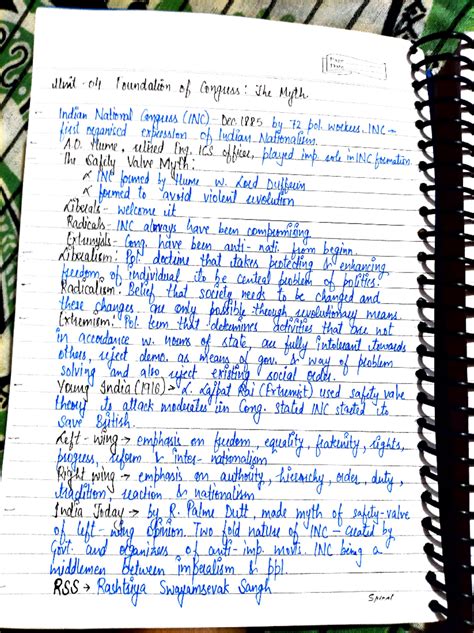 Unit-04 Foundation of Congress: The Myth
Indian National Congress (INC) - Dec 1885 by 72 pol. workers. INC →
first organised expression of Indian Nationalism.
A.O. Hume, retired Eng. ICS officer, played imp. role in INC formation.
The Safety Valve Myth:
INC formed by Hume w. Lord Dufferin
formed to avoid violent revolution
Liberals - welcome it
Radicals - INC always have been compromising
Extremists - Cong. have been anti-nati. from beginn.
Liberalism: Pol. doctrine that takes protecting & enhancing
freedom of individual to be central problem of politics.
Radicalism: Belief that society needs to be changed and
these changes are only possible through revolutionary means.
Extremism: Pol. term that determines activities that are not
in accordance w. norms of state, are fully intolerant towards
others, reject demo. as means of gov. & way of problem
solving and also reject existing social order.
Young India (1916) → L. Lajpat Rai (Extremist) used safety valve
theory to attack moderates in Cong. stated INC started to
save British.
Left-wing → emphasis on freedom, equality, fraternity, rights,
progress, reform & inter-nationalism
Right wing → emphasis on authority, hierarchy, order, duty,
tradition, reaction & nationalism
India Today → by R. Palme Dutt, made myth of safety-valve
of left-wing opinion. Two fold nature of INC - created by
Govt. and organizers of anti-imp. movts. INC being a
middlemen between imperialism & ppl.
RSS → Rashtriya Swayamsevak Sangh
Spiral